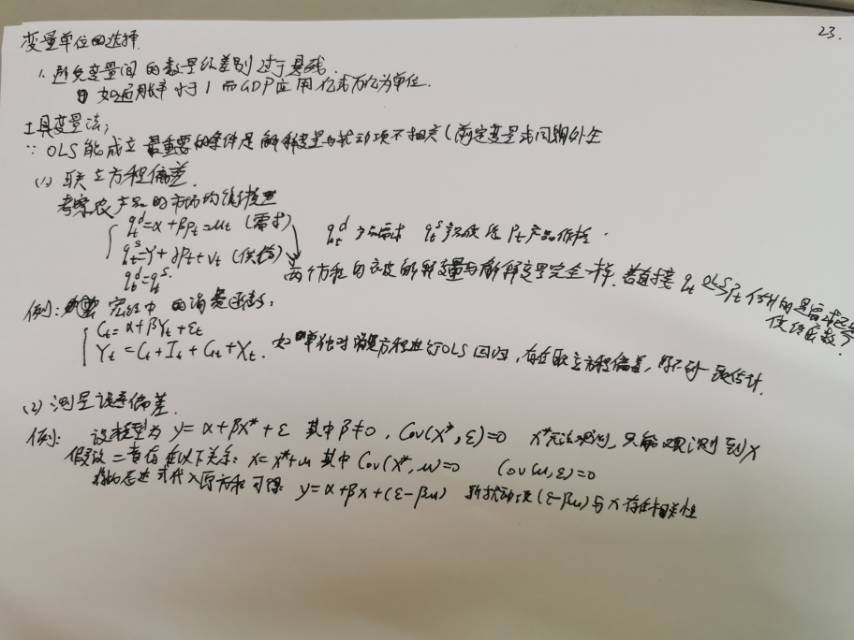 23.
变量单位的选择
1. 避免变量间的数量级差别过于悬殊.
如通胀率小于1 而GDP应用亿或万亿为单位.
工具变量法:
∵ OLS能成立最重要的条件是解释变量与扰动项不相关(前定变量或同期外生
(1) 联立方程偏差.
考察农产品的市场均衡模型
q_t^d = α + βp_t + u_t (需求)
q_t^s = γ + δp_t + v_t (供给)
q_t^d = q_t^s.
q_t^d 为需求 q_t^s 为 p_t 产品价格.
两个方程的被解释变量与解释变量完全一样. 若直接 q_t OLS p_t 估计的是需求还是
供给函数?
例: 宏经中的消费函数:
C_t = α + βY_t + ε_t
Y_t = C_t + I_t + G_t + X_t. 如单独对消费方程进行OLS回归, 存在联立方程偏差, 得不到一致估计.
(2) 测量误差偏差.
例: 设模型为 y = α + βx* + ε 其中 β≠0, Cov(x*, ε)=0 x*无法观测, 只能观测到x
假设二者存在以下关系: x = x* + u 其中 Cov(x*, u)=0 Cov(u, ε)=0
表达式代入原方程可得: y = α + βx + (ε-βu) 新扰动项 (ε-βu) 与 x 存在相关性